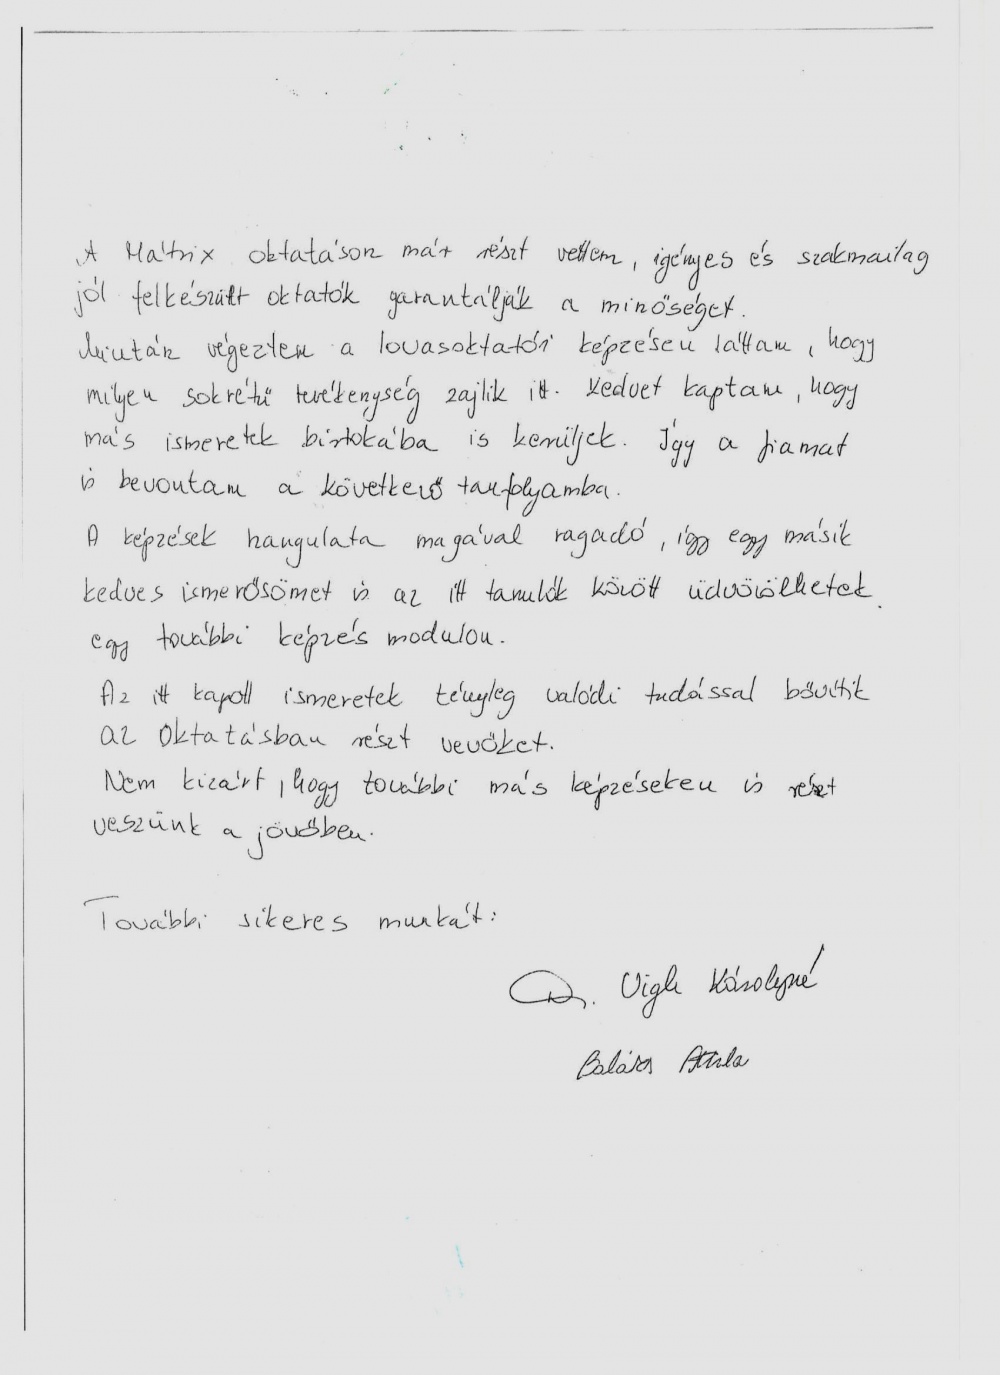 A Mátrix oktatáson már részt vettem, igényes és szakmailag
jól felkészült oktatók garantálják a minőséget.
Miután végeztem a lovasoktatói képzésen láttam, hogy
milyen sokrétű tevékenység zajlik itt. Kedvet kaptam, hogy
más ismeretek birtokába is kerüljek. Így a fiamat
is bevontam a következő tanfolyamba.
A képzések hangulata magával ragadó, így egy másik
kedves ismerősömet is az itt tanulók között üdvözölhetek
egy további képzés modulon.
Az itt kapott ismeretek tényleg valódi tudással bővítik
az oktatásban részt vevőket.
Nem kizárt, hogy további más képzéseken is részt
veszünk a jövőben.
További sikeres munkát:
Dr. Vigh Károlyné
Balázs Attila